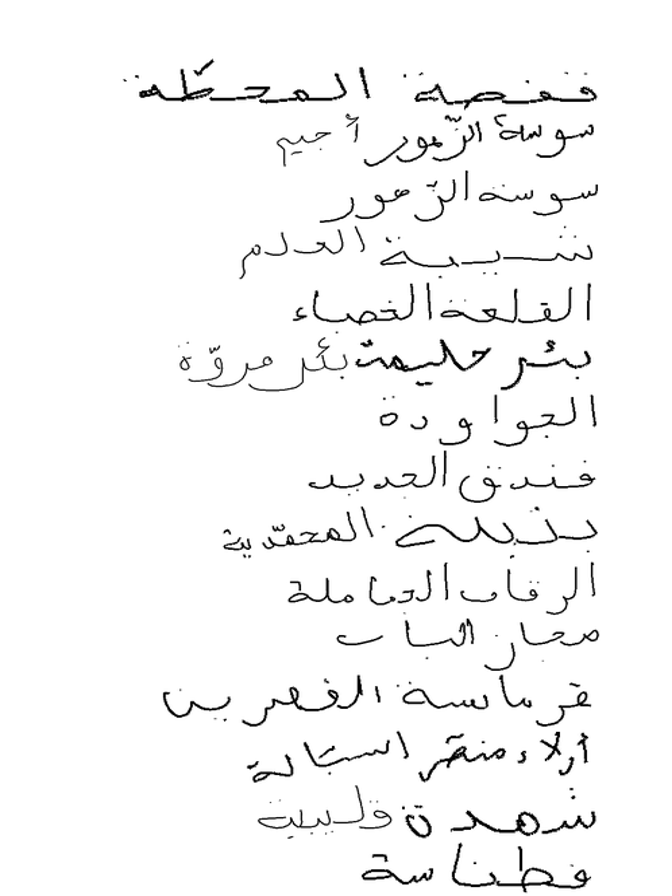 قفصة المحطّة
سوسة الزّهور أجيم
سوسة الزّهور
شيبة
القلعة الخصباء
بئر حليمة بئر مروّة
الجواودة
فندق الجديد
المحمّدية
الرقاب الحماملة
مجاز الباب
قرماسة القصرين
أولاد منصر السبّالة
قليبية
فطناسة